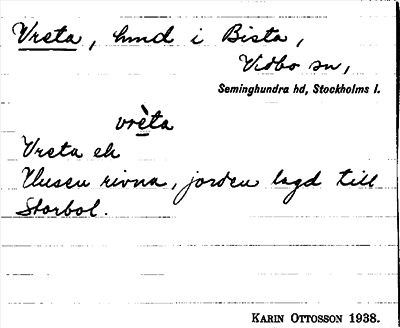 Vreta, hmd i Bista,
Vidbo sn,
Seminghundra hd, Stockholms l.
vrèta
Vreta eh
Husen rivna, jorden lagd till
Storbol.
KARIN OTTOSSON 1938.